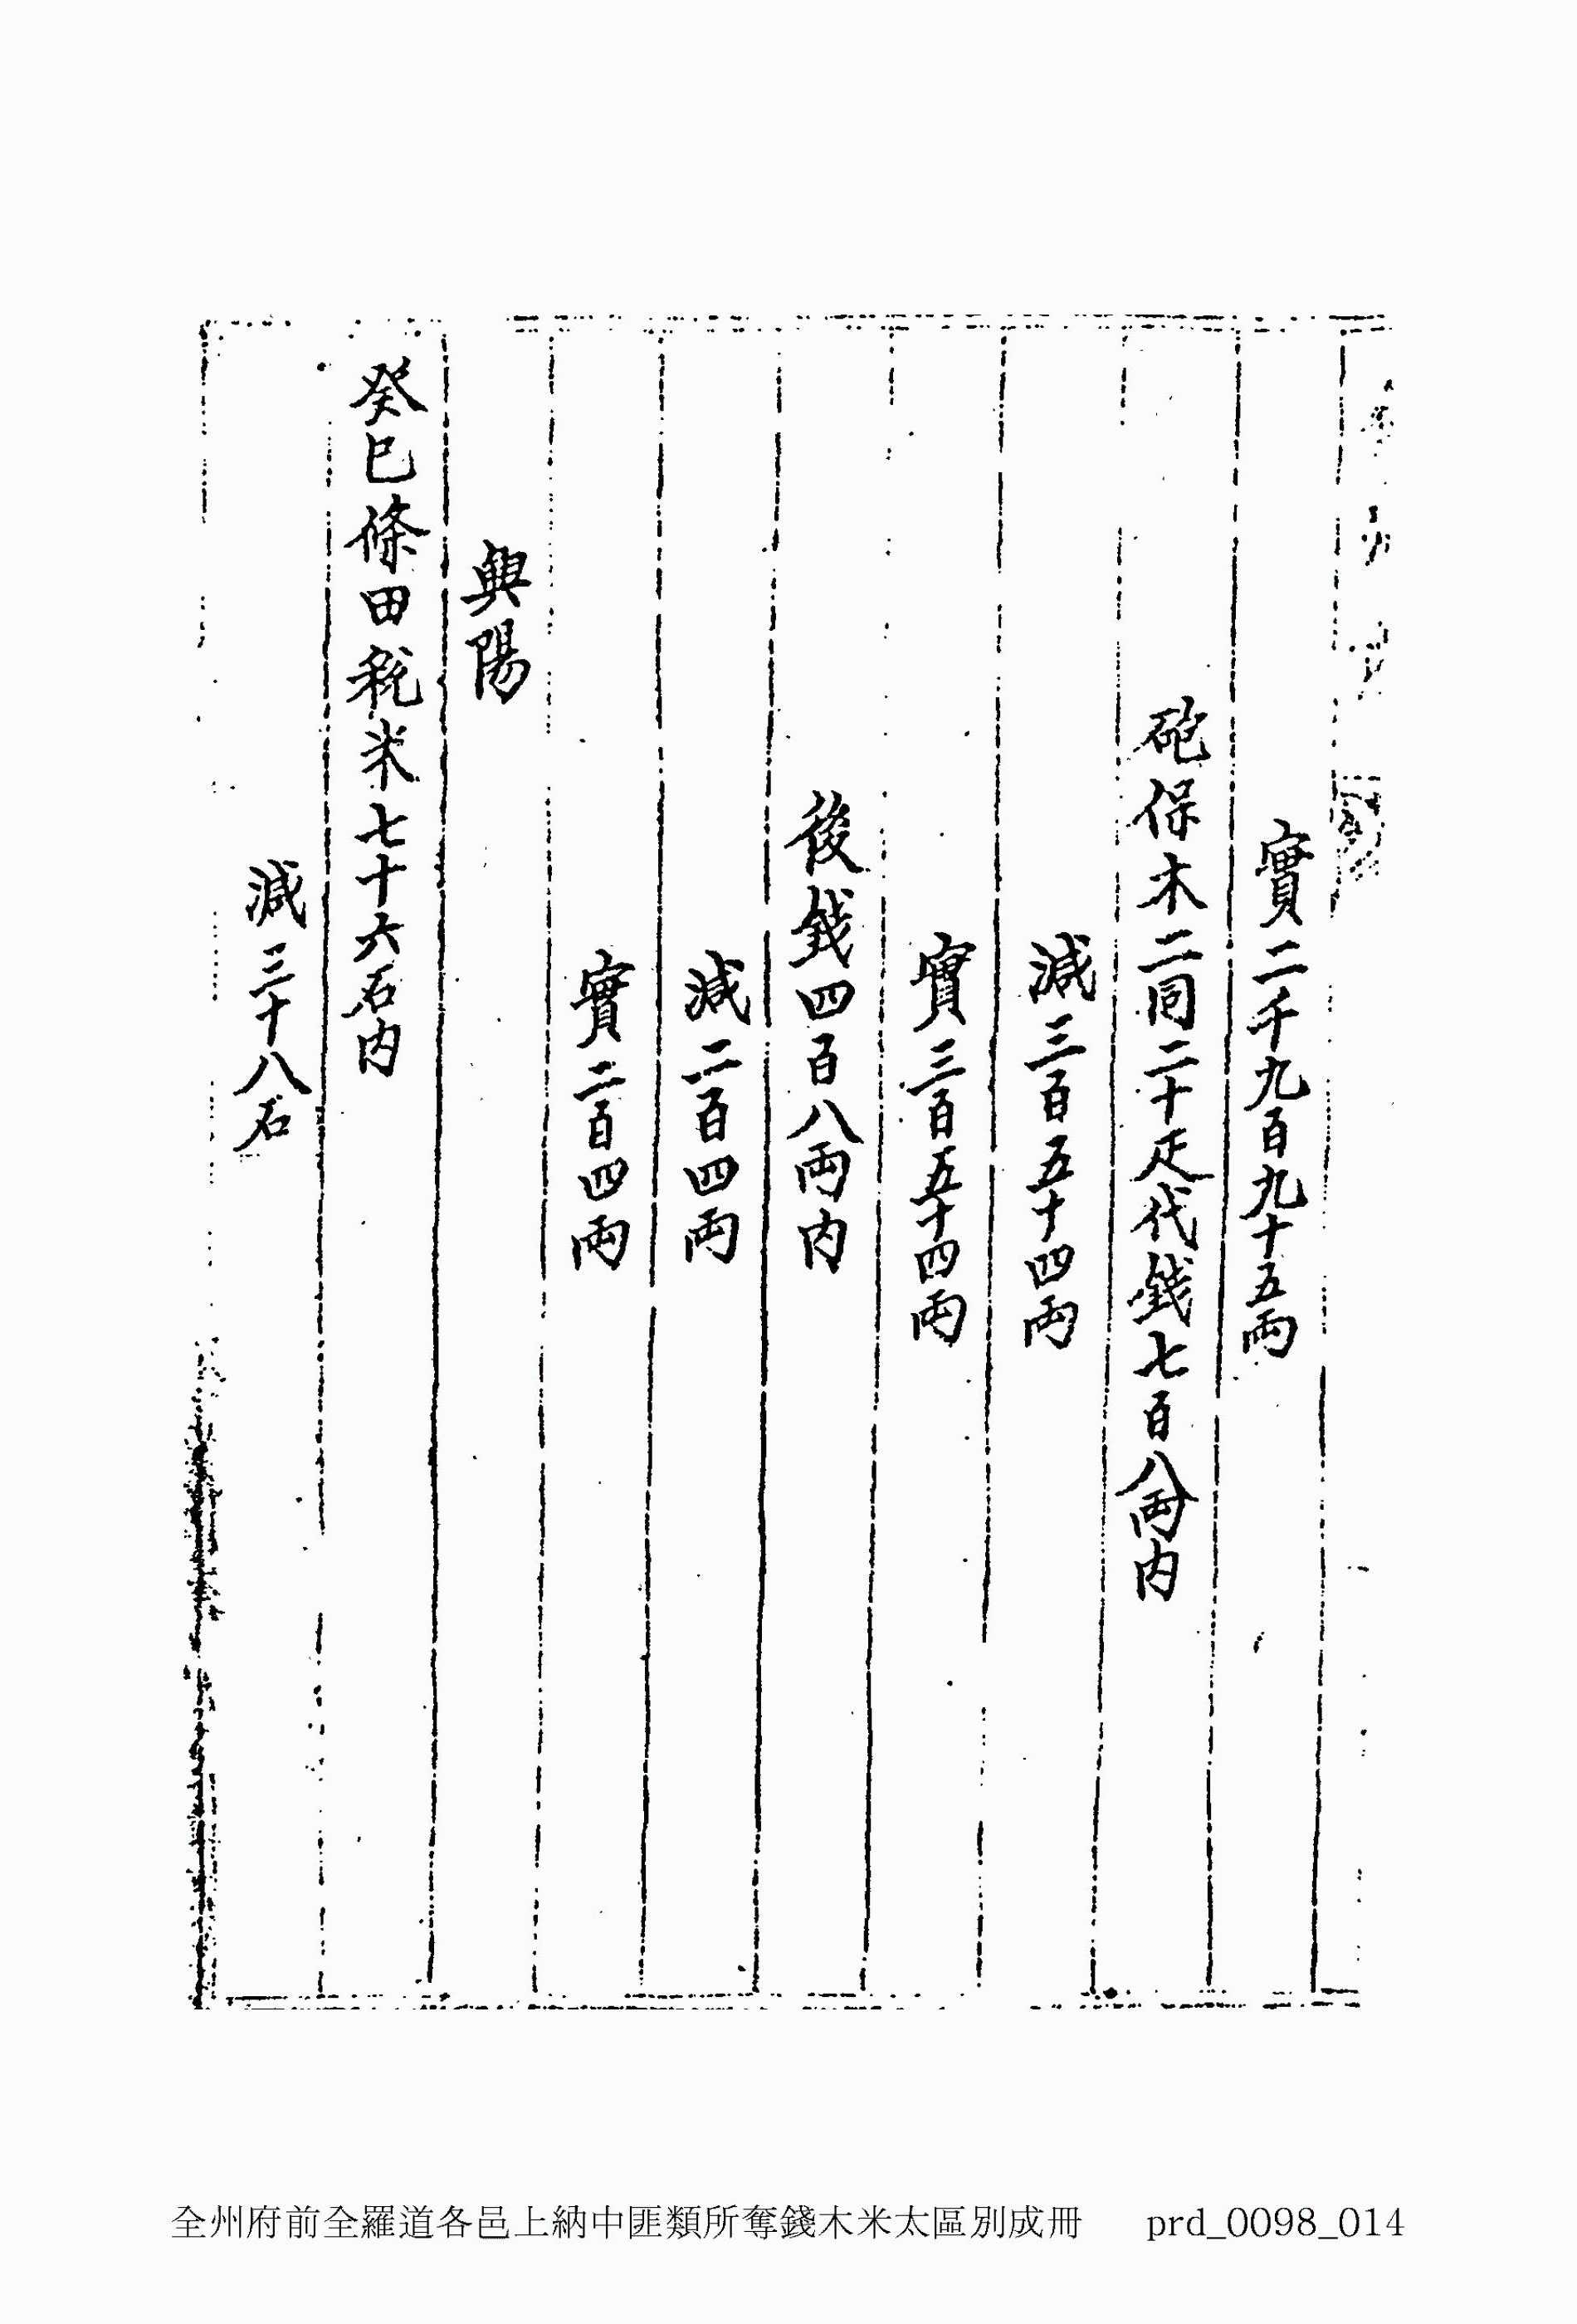 實二千九百九十五両
砲保木二同二十疋代錢七百八両内
減三百五十四両
實三百五十四両
後錢四百八両内
減二百四両
實二百四両
興陽
癸巳條田税米七十六石内
減三十八石
全州府前全羅道各邑上納中匪類所奪錢木米太區別成冊 prd_0098_014